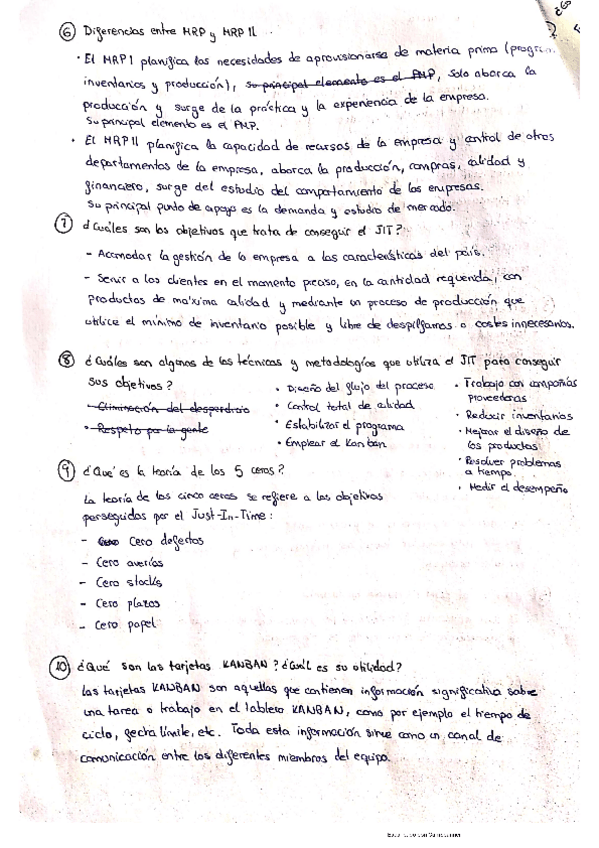 6 Diferencias entre MRP y MRP II.
• El MRP I planifica las necesidades de aprovisionarse de materia prima (progr
inventarios y producción), su principal elemento es el PMP, solo aborca la
producción y surge de la práctica y la experiencia de la empresa.
Su principal elemento es el PMP.
• El MRP II planifica la capacidad de recursos de la empresa y control de otros
departamentos de la empresa, aborca la producción, compras, calidad y
financiero, surge del estudio del comportamiento de las empresas.
Su principal punto de apoyo es la demanda y estudio de mercado.
7 ¿Cuáles son los objetivos que trata de conseguir el JIT?
- Acomodar la gestión de la empresa a las características del país.
- Servir a los clientes en el momento preciso, en la cantidad requerida, con
productos de máxima calidad y mediante un proceso de producción que
utilice el mínimo de inventario posible y libre de despilfarros o costes innecesarios.
8 ¿Cuáles son algunas de las técnicas y metodologías que utiliza el JIT para conseguir
sus objetivos?
- Eliminación del desperdicio
• Respeto por la gente
• Diseño del flujo del proceso
• Control total de calidad
• Estabilizar el programa
• Emplear el Kanban
• Trabajo con compañías
proveedoras
• Reducir inventarios
• Mejorar el diseño de
los productos
• Resolver problemas
a tiempo
• Medir el desempeño
9 ¿Qué es la teoría de los 5 ceros?
La teoría de los cinco ceros se refiere a los objetivos
perseguidos por el Just-In-Time:
- Cero defectos
- Cero averías
- Cero stocks
- Cero plazos
- Cero papel
10 ¿Qué son las tarjetas KANBAN? ¿Cuál es su utilidad?
Las tarjetas KANBAN son aquellas que contienen información significativa sobre
una tarea o trabajo en el tablero KANBAN, como por ejemplo el tiempo de
ciclo, fecha límite, etc. Toda esta información sirve como un canal de
comunicación entre los diferentes miembros del equipo.